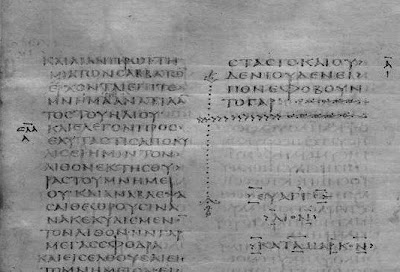 ΚΑΙΛΙΑΝΠΡΩΙΤΗ
ΜΙΑΤΩΝϹΑΒΒΑΤΩ
ΕΡΧΟΝΤΑΙΕΠΙΤΟ
ΜΝΗΜΑΑΝΑΤΙΛΑ
ΤΟϹΤΟΥΗΛΙΟΥ
ΚΑΙΕΛΕΓΟΝΠΡΟϹ
ΕΑΥΤΑϹΤΙϹΑΠΟΚΥ
ΛΙϹΕΙΗΜΙΝΤΟΝ
ΛΙΘΟΝΕΚΤΗϹΘΥ
ΡΑϹΤΟΥΜΝΗΜΕΙ
ΟΥΚΑΙΑΝΑΒΛΕΨΑ
ϹΑΙΘΕΩΡΟΥϹΙΝΑ
ΝΑΚΕΚΥΛΙϹΜΕΝ
ΤΟΝΛΙΘΟΝΗΝΓΑΡ
ΜΕΓΑϹϹΦΟΔΡΑ
ΚΑΙΕΙϹΕΛΘΟΥϹΑΙΕΙ
ΤΟΜΝΗΜΕΙΟΝ
ϹΤΑϹΙϹΚΑΙΟΥ
ΔΕΝΙΟΥΔΕΝΕΙ
ΠΟΝΕΦΟΒΟΥΝ
ΤΟΓΑΡ
ΕΥΑΓΓΕ
ΛΙΟΝ
ΚΑΤΑΜΑΡΚΟΝ